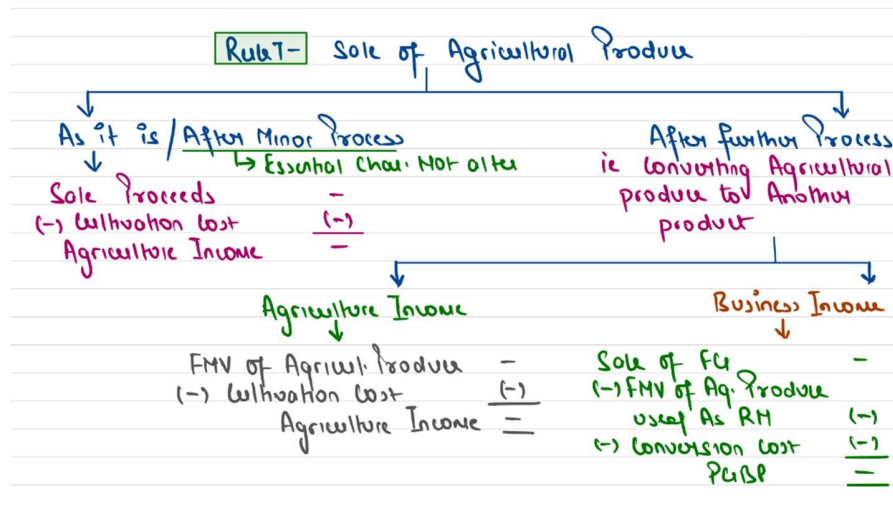 Rule 7- Sale of Agricultural Produce
As it is / After Minor Process
↳ Essential Char. Not alter
Sale Proceeds -
(-) Cultivation Cost (-)
Agriculture Income =
After further Process
ie Converting Agricultural
produce to Another
product
Agriculture Income
FMV of Agricul. Produce -
(-) Cultivation Cost (-)
Agriculture Income =
Business Income
Sale of FG -
(-) FMV of Ag. Produce
used As RM (-)
(-) Conversion Cost (-)
PGBP =